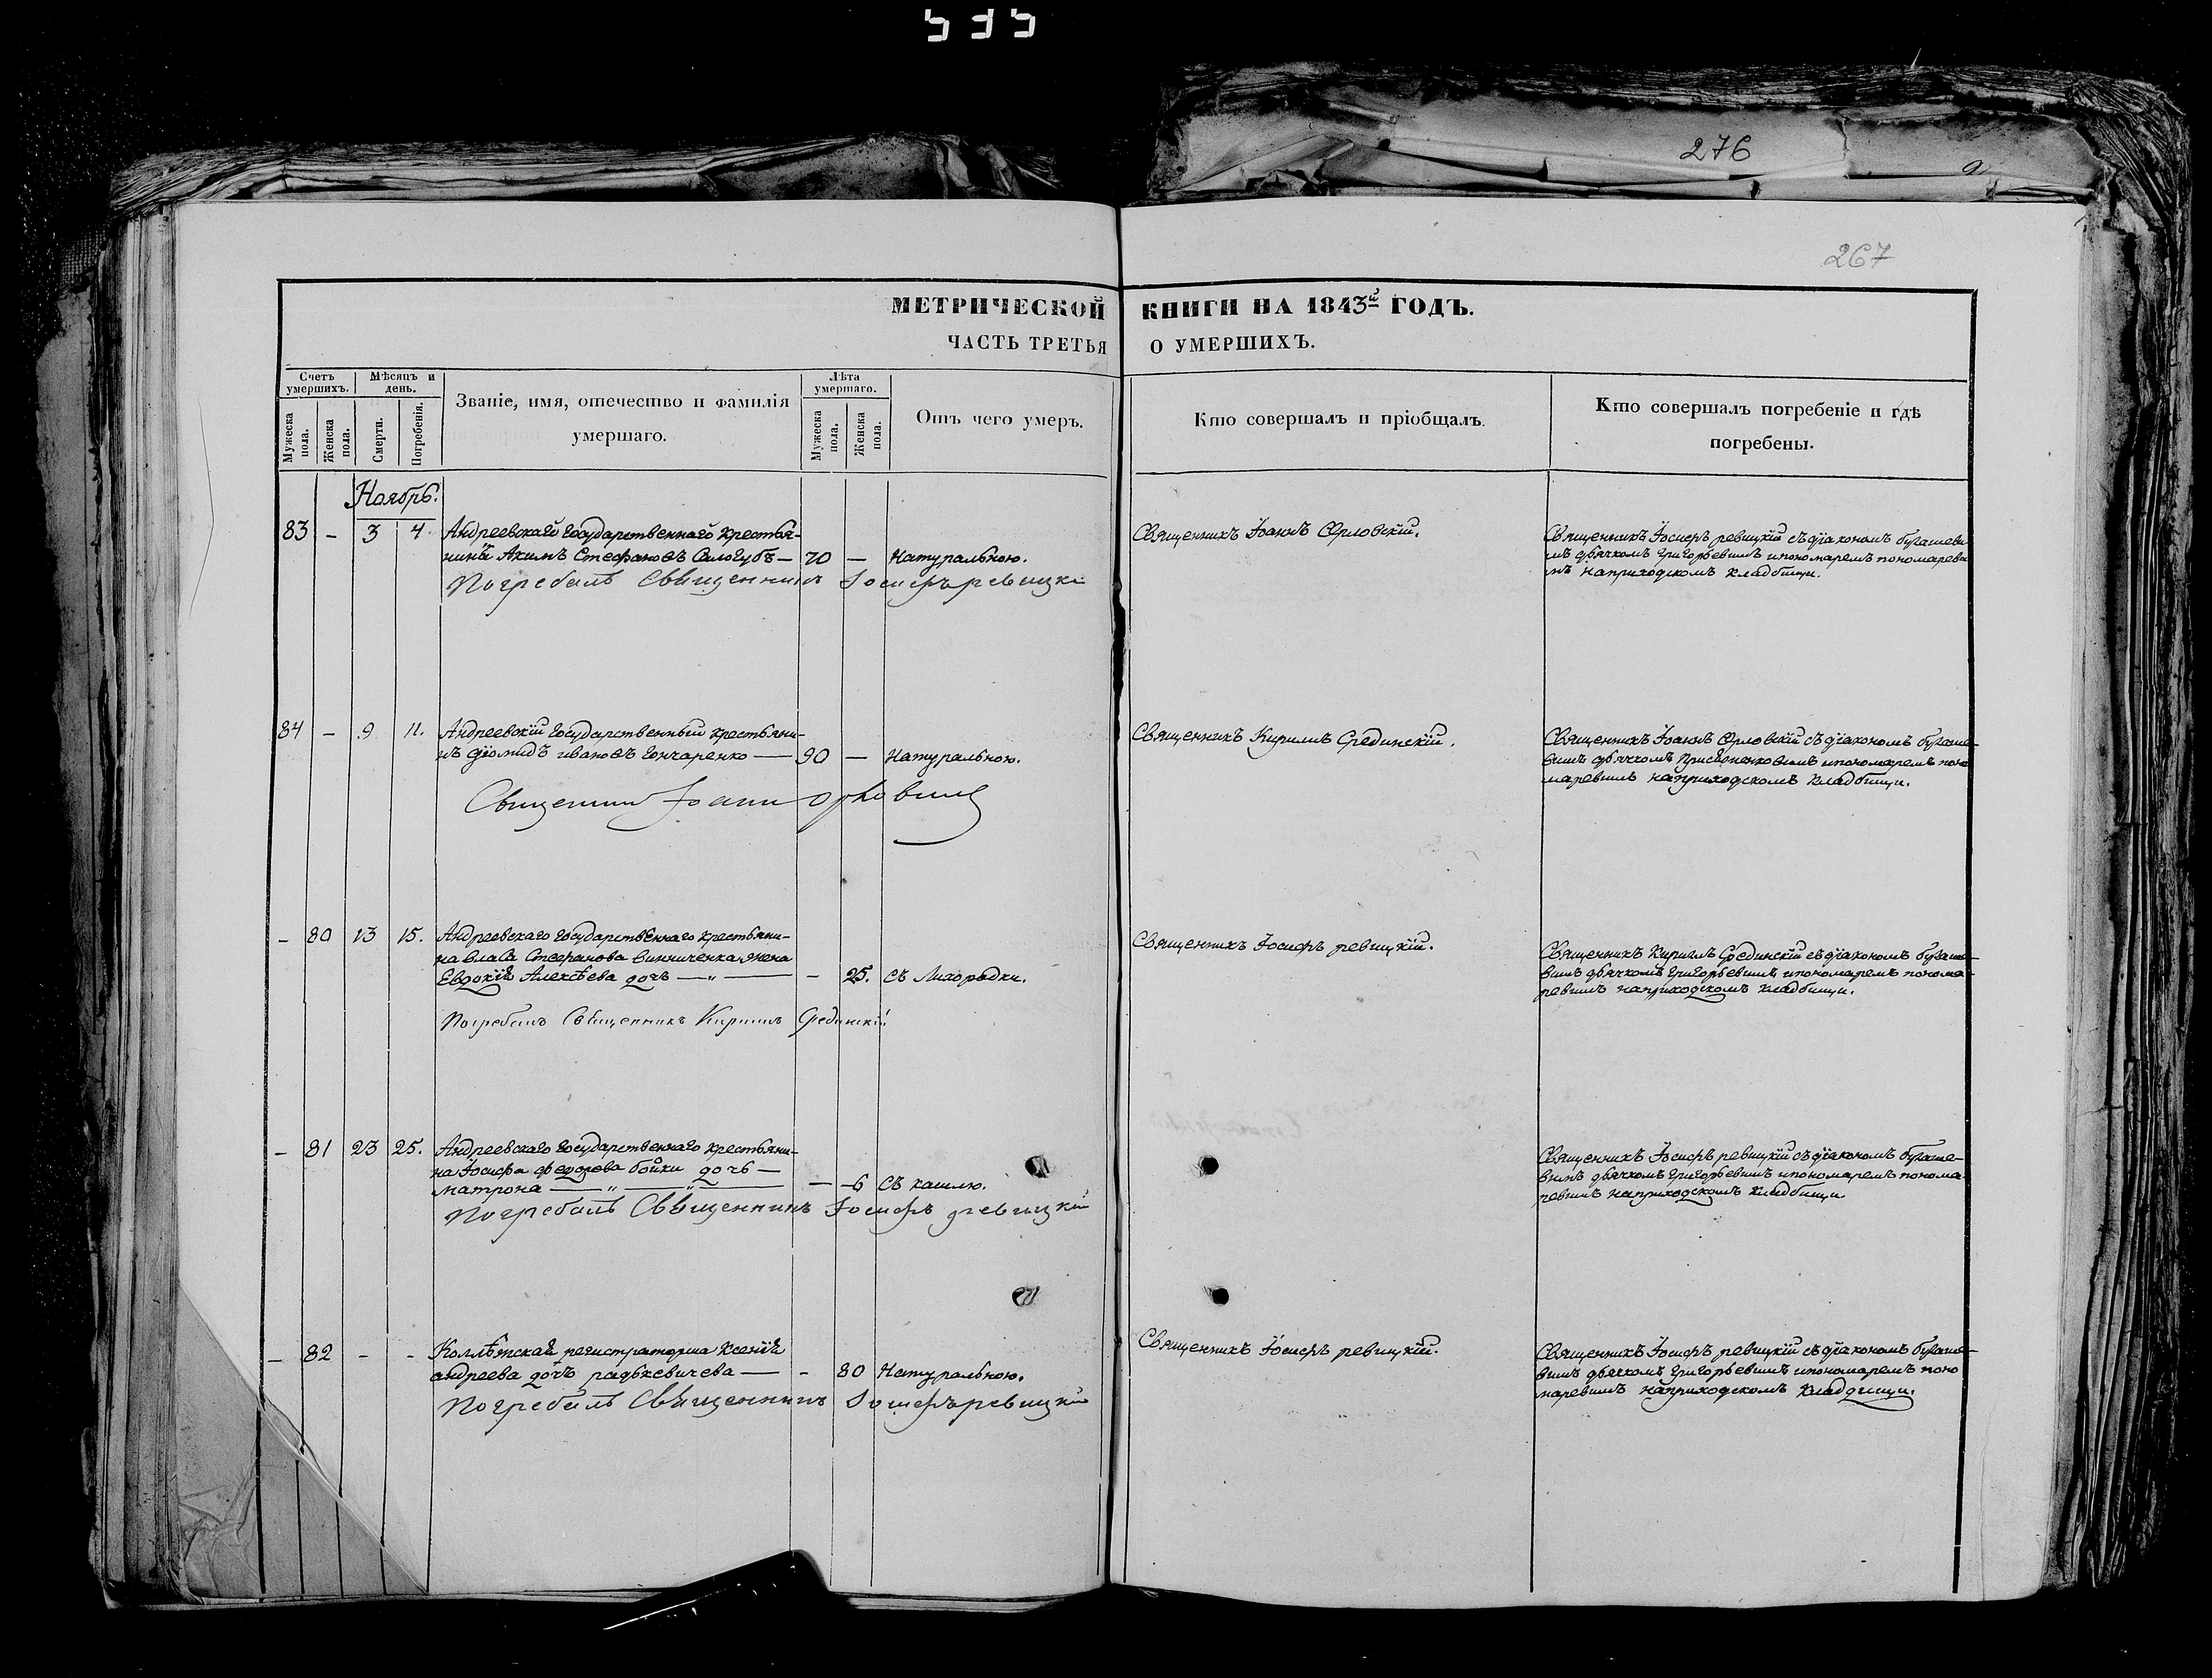 276
267
МЕТРИЧЕСКОЙ КНИГИ НА 1843й ГОДЪ.
ЧАСТЬ ТРЕТЬЯ О УМЕРШИХЪ.
Счетъ умершихъ.
Мужеска пола.
Женска пола.
Мѣсяцъ и день.
Смерти.
Погребенія.
Званіе, имя, отечество и фамилія
умершаго.
Лѣта умершаго.
Мужеска пола.
Женска пола.
Отъ чего умеръ.
Кто совершалъ и пріобщалъ.
Кто совершалъ погребеніе и гдѣ
погребены.
Ноябрь.
83 — 3 4 Андреевскаго государственнаго крестья-
Акимъ Стефановъ Сологубъ — 70 — Натуральною.
Погребалъ Священникъ Іосифъ ревицкій
Священникъ Іоаннъ Орловскій.
Священникъ Іосифъ ревицкій съ діакономъ бугашеви
мъ дьячкомъ григорьевымъ и пономаремъ пономареви
мъ на приходскомъ кладбищи.
84 — 9 11. Андреевскій государственный крестьяни-
нъ діомидъ ивановъ гончаренко — 90 — Натуральною.
Священникъ Іоаннъ орловскій
Священникъ Кирилъ Срединскій.
Священникъ Іоаннъ Орловскій съ діакономъ бугаше-
вимъ дьячкомъ и пономаремъ поно
маревимъ на приходскомъ кладбищи.
— 80 13 15. Андреевскаго государственнаго крестьяни-
на власа Стефанова винниченка жена
Евдокія Алексѣева дочь — „ — — 25. съ Лихорадки.
Погребалъ Священникъ Кирилъ Срединскій
Священникъ Іосифъ ревицкій.
Священникъ Кирилъ Срединскій съ діакономъ бугаше-
вимъ дьячкомъ григорьевимъ и пономаремъ понома-
ревимъ на приходскомъ кладбищи.
— 81 23 25. Андреевскаго государственнаго крестьяни-
на Іосифа федорова бойки дочь —
матрона — „ — „ — — 6 съ кашлю.
Погребалъ Священникъ Іосифъ ревицкій
Священникъ Іосифъ ревицкій съ діакономъ бугаше-
вимъ дьячкомъ григорьевимъ и пономаремъ понома-
ревимъ на приходскомъ кладбищи
— 82 - - Коллѣжская регистраторша Ксенія
андреева дочъ радькевичева — - 80 Натуральною.
Погребалъ Священникъ Іосифъ ревицкій
Священникъ Іосифъ ревицкій.
Священникъ Іосифъ ревицкій съ діакономъ бугаше-
вимъ дьячкомъ григорьевимъ и пономаремъ поно
маревимъ на приходскомъ кладдищи.